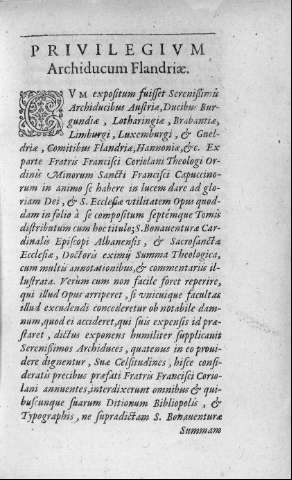 PRIVILEGIVM
Archiducum Flandriæ.
CVM expositum fuisset Serenissimis
Archiducibus Austriæ, Ducibus Bur-
gundiæ, Lotharingiæ, Brabantiæ,
Limburgi, Luxemburgi, & Guel-
driæ, Comitibus Flandriæ, Hannoniæ, &c. Ex
parte Fratris Francisci Coriolani Theologi Or-
dinis Minorum Sancti Francisci Capuccino-
rum in animo se habere in lucem dare ad glo-
riam Dei, & S. Ecclesiæ vtilitatem Opus quod-
dam in folio à se compositum septémque Tomis
distributum cum hoc titulo; S. Bonauenturæ Car-
dinalis Episcopi Albanensis, & Sacrosanctæ
Ecclesiæ, Doctoris eximij Summa Theologica,
cum multis annotationibus, & commentariis il-
lustrata. Verùm cum non facile foret reperire,
qui illud Opus arriperet, si vnicuique facultas
illud excudendi concederetur ob notabile dam-
num, quod ei accideret, qui suis expensis id præ-
staret, dictus exponens humiliter supplicauit
Serenissimos Archiduces, quatenus in eo proui-
dere dignentur, Suæ Celsitudines, hisce consi-
deratis precibus præfati Fratris Francisci Corio-
lani annuentes, interdixerunt omnibus & qui-
buscunque suarum Ditionum Bibliopolis, &
Typographis, ne supradictam S. Bonauenturæ
Summam